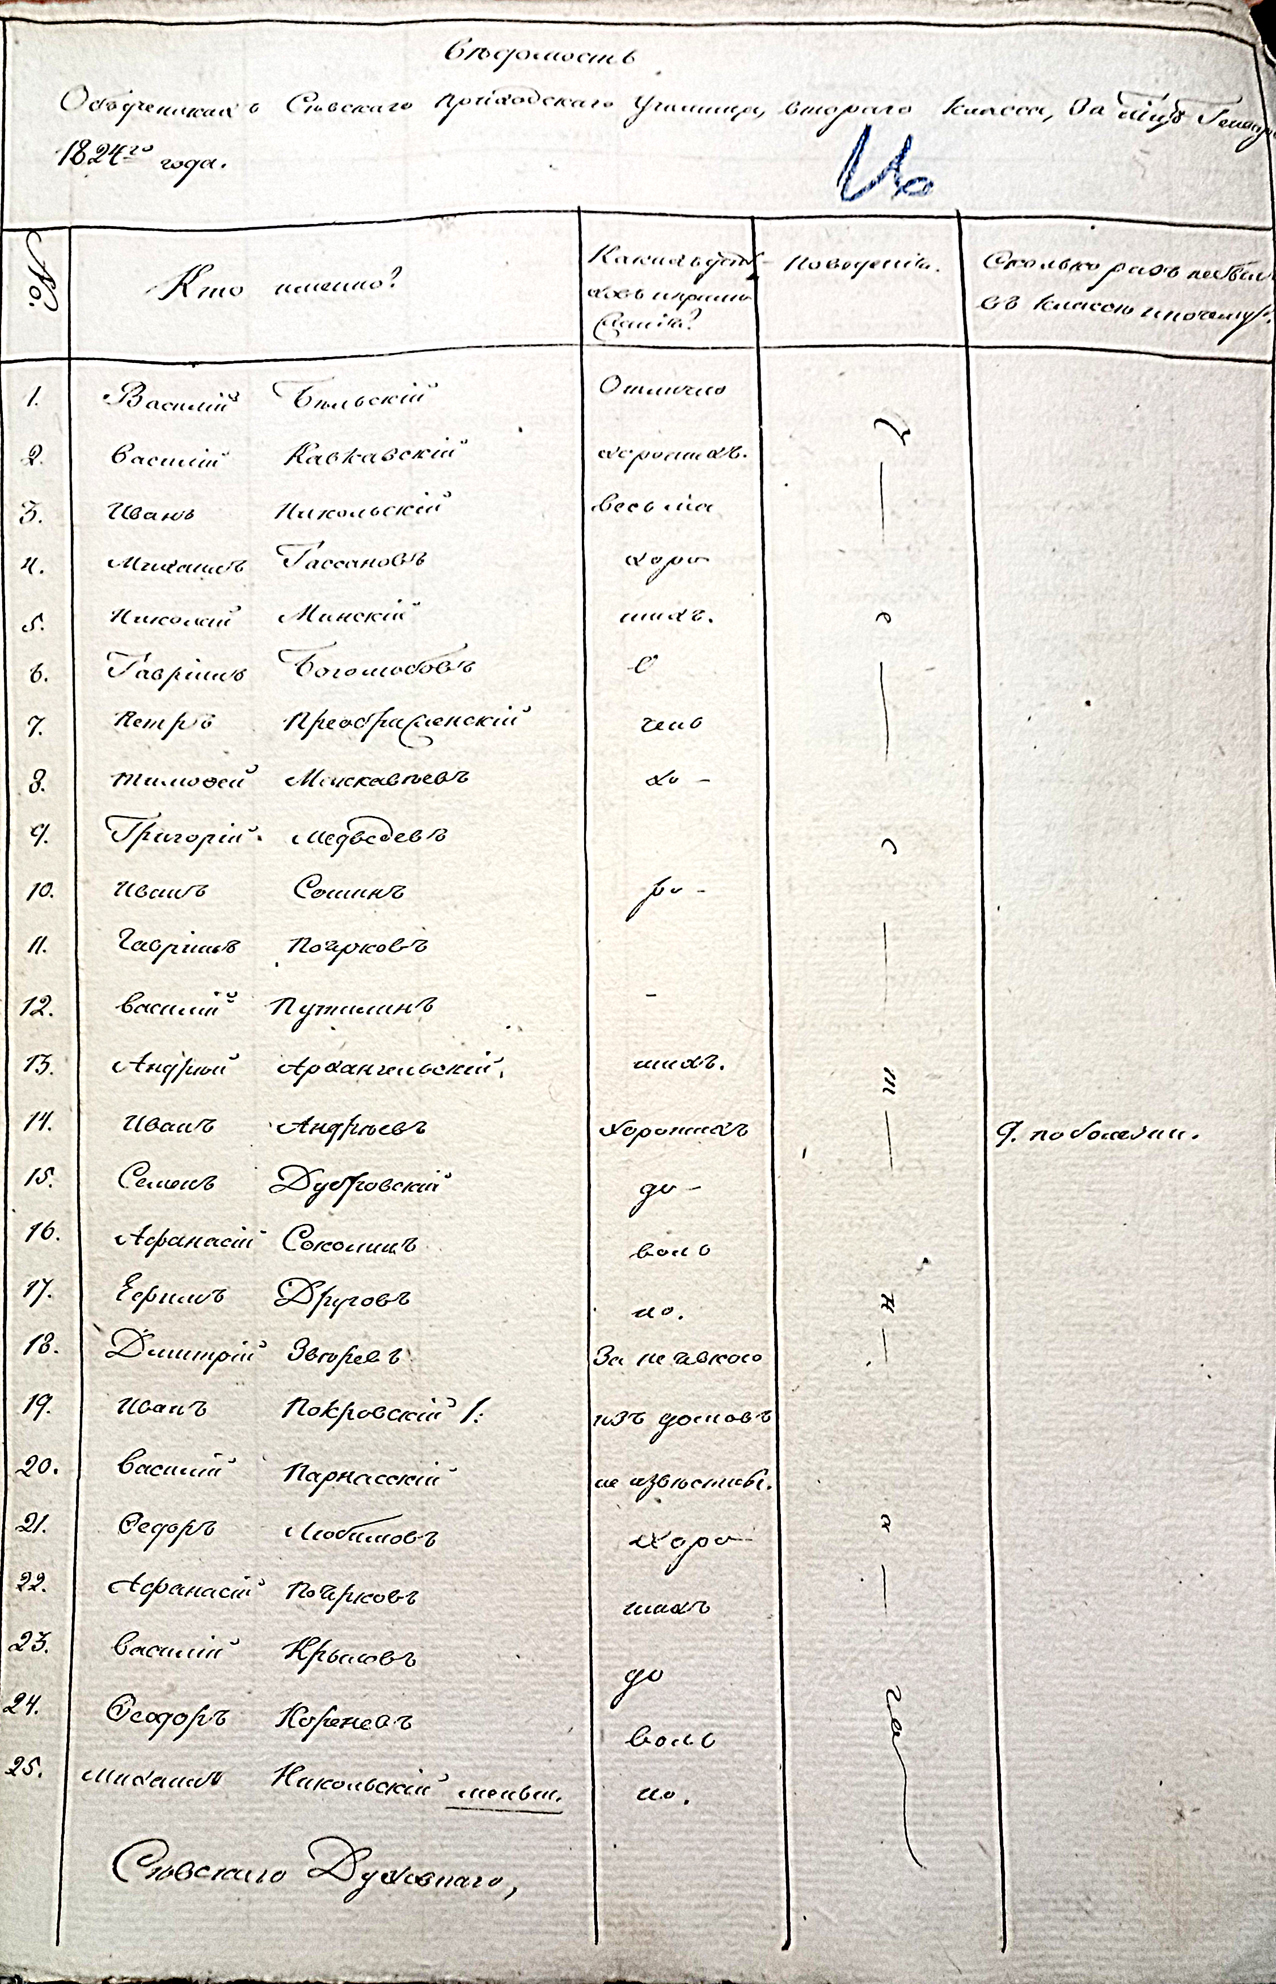 Вѣдомость
Обѣученикахъ Сѣвскаго приходскаго училища, втораго класса, за Генваръ
1824го года.
№.
Кто именно?
Какихъ успѣ-
ховъ и прилѣ-
жанія?
Поведенія.
Сколько разъ небыл
въ классѣ и почему?
1. Василій Бѣльскій Отлично
2. Василій Кавкавскій хорошихъ.
3. Иванъ Никольскій весьма
4. Михаилъ Гассановъ хоро
5. Николай Минскій шихъ.
6. Гавріилъ Боголюбовъ О
7. Петръ Преображенскій чень
8. Тимоѳей хо-
9. Григорій. Медвѣдевъ
10. Иванъ Сошинъ ро-
11. Гавріилъ Поярковъ
12. Василій Путилинъ -
13. Андрей Архангельскій. шихъ.
14. Иванъ Андрѣевъ хорошихъ 9. по болезни.
15. Семенъ Дубровскій до-
16. Афанасій воль
17. Ефимъ Друговъ но.
18. Дмитрій За неявкою
19. Иванъ Покровскій 1: изъ домовъ
20. Василій Парнасскій не извѣстны.
21. Ѳедоръ Любимовъ Хоро
22. Афанасій Поярковъ шихъ
23. Василій Крыловъ до
24. Ѳеодоръ Кореневъ воль
25. Михаилъ Никольскій меньш. но.
Ч е с т н а го
Сѣвскаго Духовнаго,